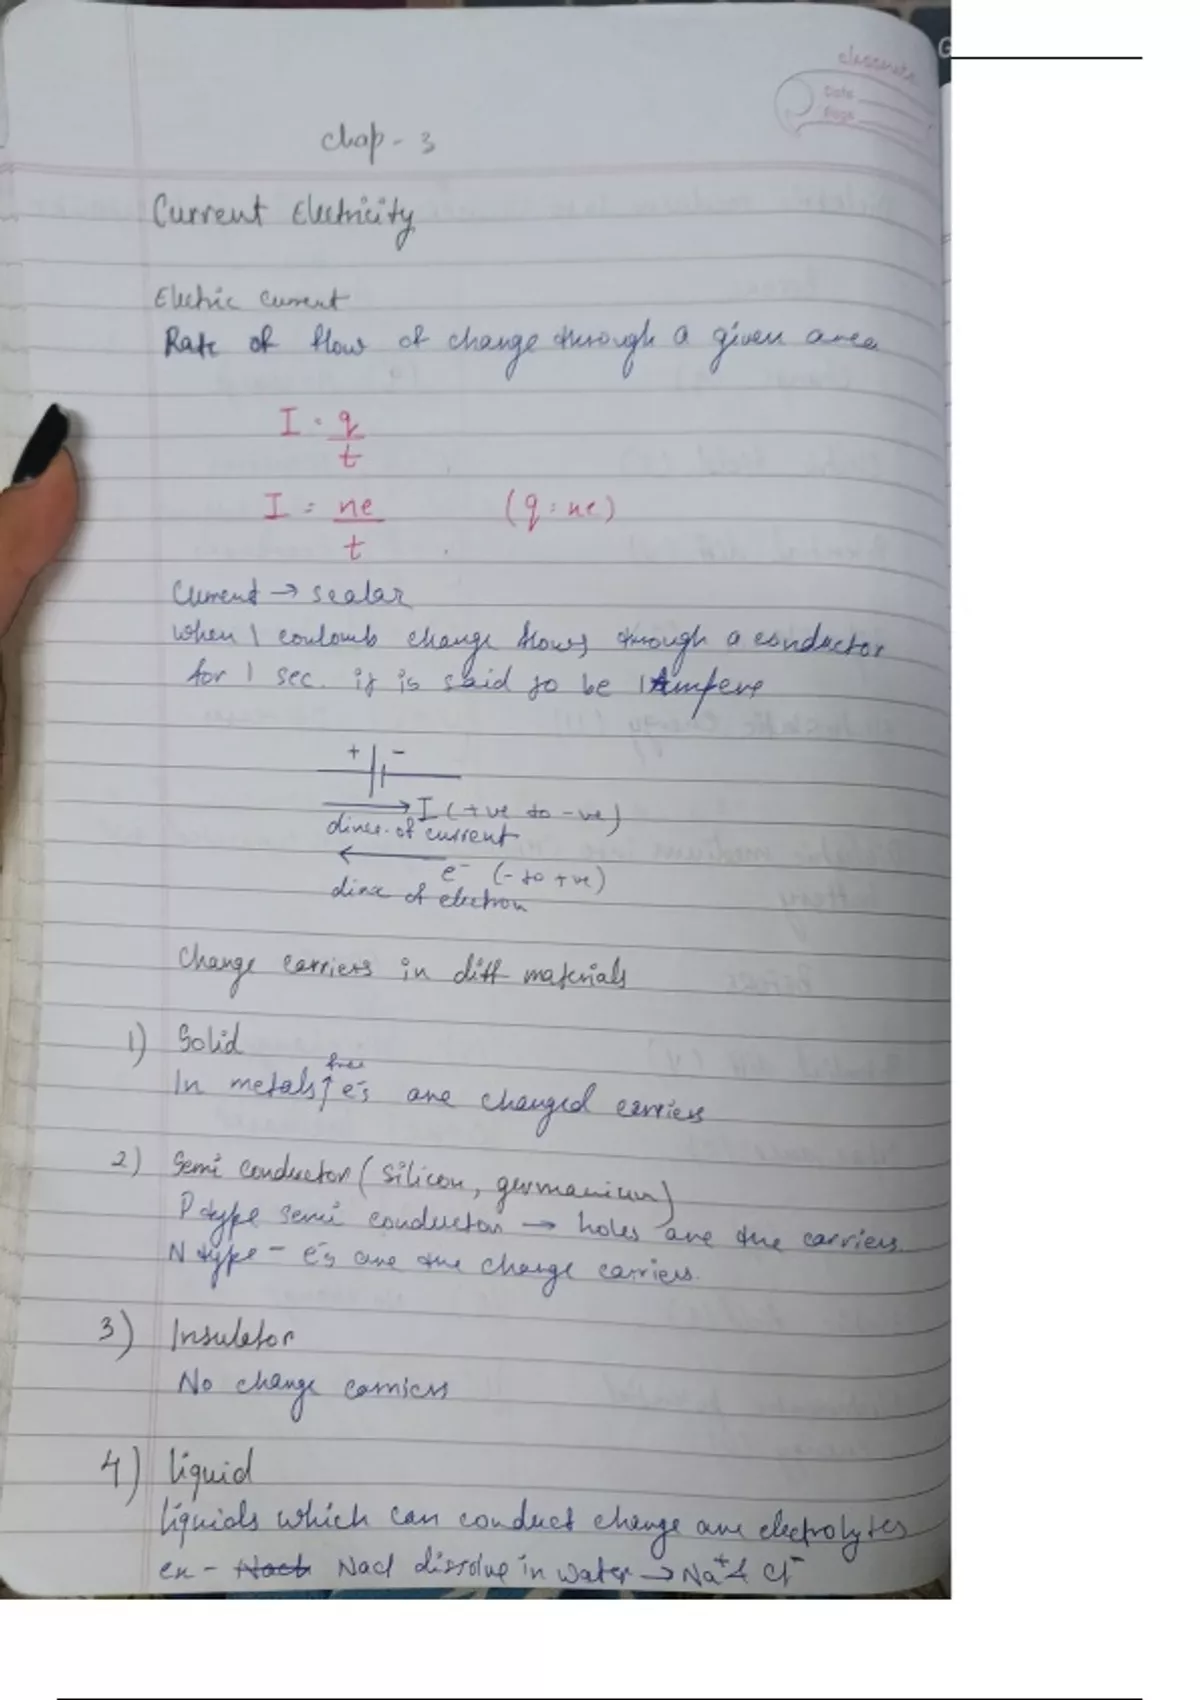 classmate
Date
Page
G
Chap - 3
Current Electricity
Electric Current
Rate of flow of charge through a given area
I = q/t
I = ne/t (q = ne)
Current → scalar
When 1 coulomb charge flows through a conductor
for 1 sec. it is said to be 1 Ampere
+ -
I (+ve to -ve)
direc. of current
e⁻ (- to +ve)
direc of electron
Charge carriers in diff materials
1) Solid
free
In metals ↑ e⁻s are charged carriers
2) Semi conductor (silicon, germanium)
P type semi conductor → holes are the carriers.
N type - e⁻s are the charge carriers.
3) Insulator
No charge carriers
4) liquid
liquids which can conduct charge are electrolytes
ex - Nacl Nacl dissolve in water → Na⁺ & Cl⁻